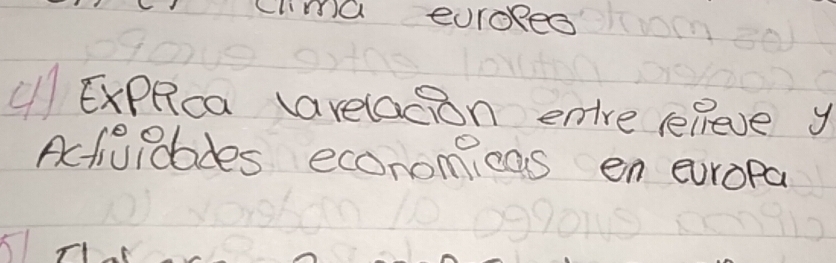 clima europeo
4) Explica la relación entre relieve y
Actividades economicas en europa
5)